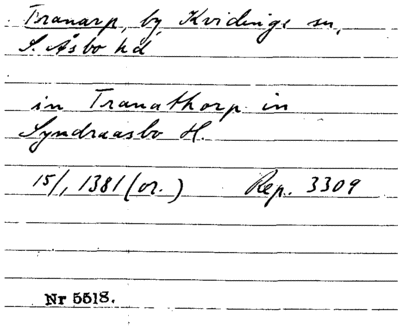 Tranarp, by, Kvidinge sn,
S. Åsbo hd
in Tranathorp in
Syndraasbo H.
15/1 1381 (or.) Rep. 3309
Nr 5518.